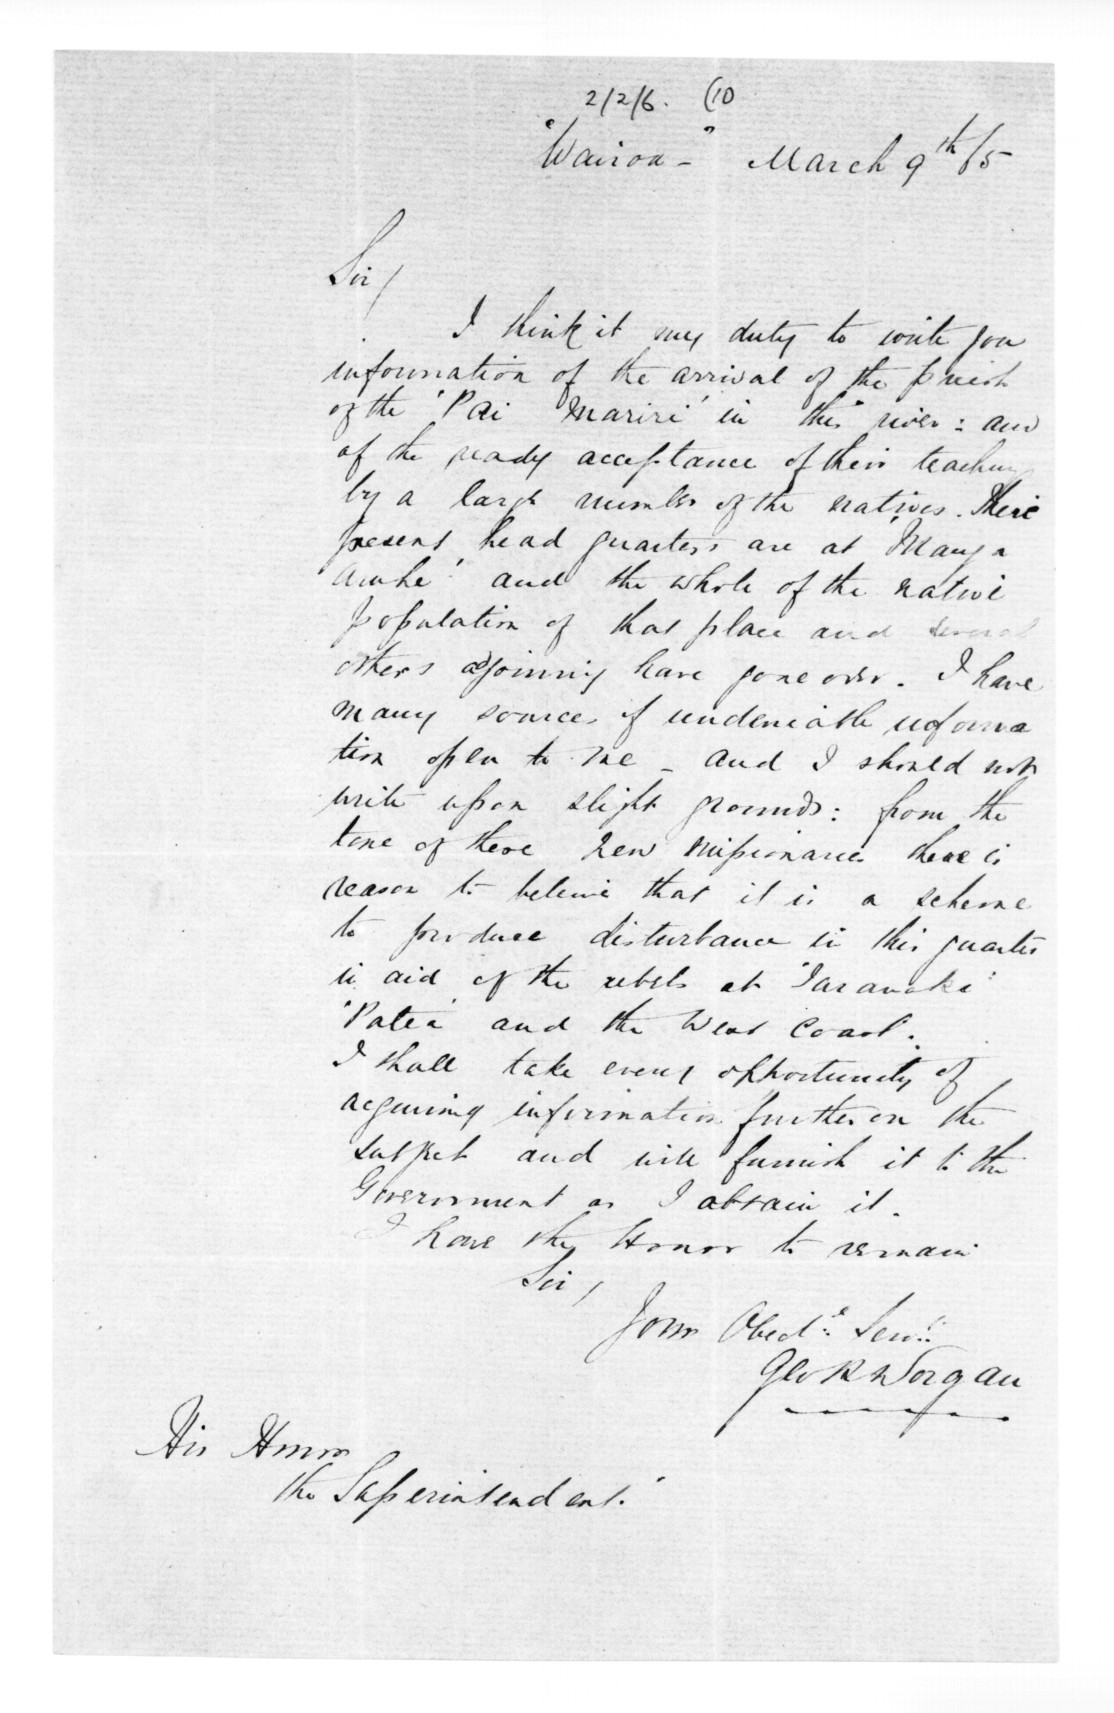 2/2/6. (10
"Wairoa" - March 9th /65
Sir/
I think it my duty to write you
information of the arrival of the priests
of the 'Pai Marire' in this river: and
of the ready acceptance of their teaching
by a large number of the natives. Their
present head quarters are at 'Manga
aruhe' and the whole of the native
population of that place and several
others adjoining have gone over. I have
many sources of undeniable informa
tion open to me - and I should not
write upon slight grounds: from the
tone of these new missionaries there is
reason to believe that it is a scheme
to produce disturbance in this quarter
in aid of the rebels at 'Taranaki'
'Patea' and the West Coast.
I shall take every opportunity of
acquiring information further on the
subject and will furnish it to the
Government as I obtain it.
I have the Honor to remain
Sir,
Your Obedt. Servt.
Geo R Worgan
His Honor
the Superintendent.